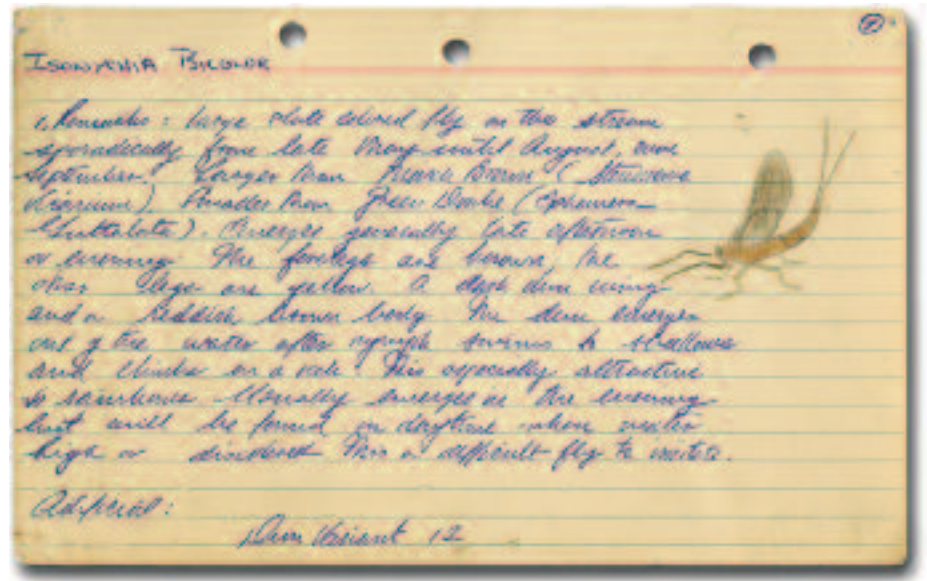 ①
Isonychia Bicolor
Remarks: large slate colored fly on the stream
sporadically from late May until August, and
September. Larger than March Brown (Stenonema
Vicarium). Smaller than Green Drake (Ephemera
Guttulata). Emerges generally late afternoon
or evening. The forelegs are brown, the
other legs are yellow. A dark dun wing
and a reddish brown body. The dun emerges
out of the water after nymph swims to shallows
and climbs on a rock. This especially attractive
to rainbows. Usually emerges in the evening
but will be found in daytime when water
high or This a difficult fly to imitate.
Artificial:
Dun Variant 12